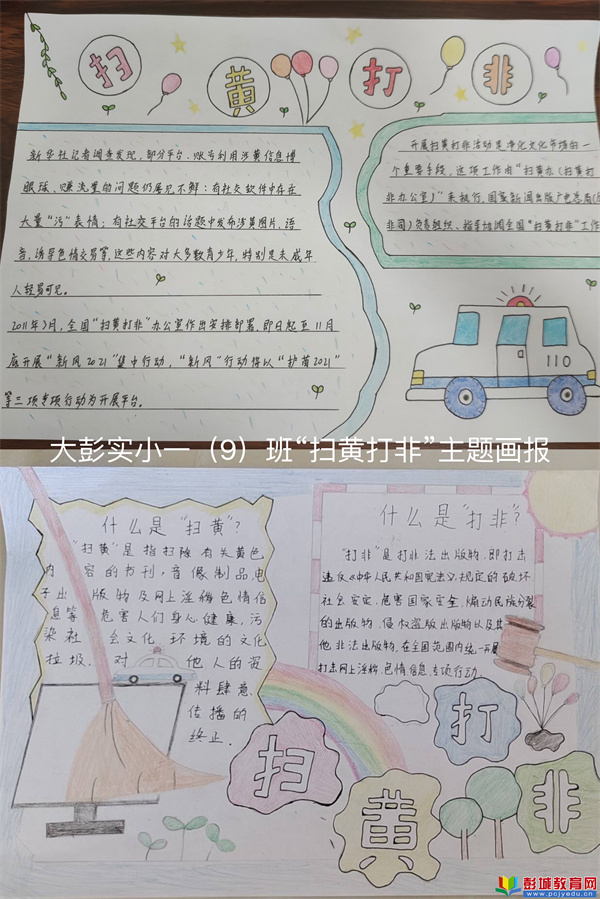 扫黄打非
新华社记者调查发现,部分平台、账号利用涉黄信息博
眼球、赚流量的问题仍屡见不鲜:有社交软件中存在
大量“污”表情;有社交平台的话题中发布涉黄图片、语
音,诱导色情交易等,这些内容对大多数青少年,特别是未成年
人轻易可见。
2011年3月,全国“扫黄打非”办公室作出安排部署,即日起至11月
底开展“新风2021”集中行动,“新风”行动将以“护苗2021”
等三项专项行动为开展平台。
开展扫黄打非活动是净化文化市场的一
个重要手段,这项工作由“扫黄办(扫黄打
非办公室)”来执行,国家新闻出版广电总局(
非司)负责组织、指导协调全国“扫黄打非”工作
110
大彭实小一(9)班“扫黄打非”主题画报
什么是“扫黄”?
“扫黄”是指扫除有关黄色
内容的书刊,音像制品,电
子出版物及网上淫秽色情信
息等危害人们身心健康,污
染社会文化环境的文化
垃圾.对他人的资
料肆意
传播的
终止.
什么是“打非”?
“打非”是打非法出版物,即打击
违反《中华人民共和国宪法》规定的破坏
社会安定,危害国家安全,煽动民族分裂
的出版物,侵权盗版出版物以及其
他非法出版物,在全国范围内统一开展
打击网上淫秽色情信息专项行动
扫黄打非
彭城教育网
www.pcjyedu.cn